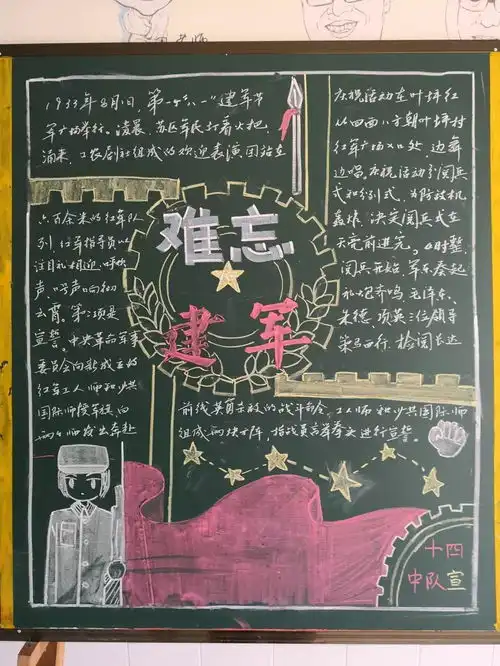 1933年8月1日,第一个"八一"建军节
军广场举行。凌晨,苏区军民打着火把,
涌来,工农剧社组成的欢迎表演团站在
庆祝活动在叶坪红
从四面八方朝叶坪村
红军广场入口处,边舞
边唱。庆祝活动分阅兵
式和分列式,为防敌机
轰炸,决定阅兵式在
天亮前进行。4时整
阅兵开始,军乐奏起
礼炮齐鸣,毛泽东、
朱德、项英三位领导
策马西行,检阅长达
六百余米的红军队
列,红军指战员以
注目礼相迎,呼欢
声、口号声响彻
云霄。第二项是
宣誓。中央革命军事
委员会向新成立的
红军工人师和少共
国际师授军旗,向
前线英勇杀敌的战斗
工人师和少共国际师
组成两块方阵,指战员言举拳头进行宣誓。
难忘
建军
十四
中队宣